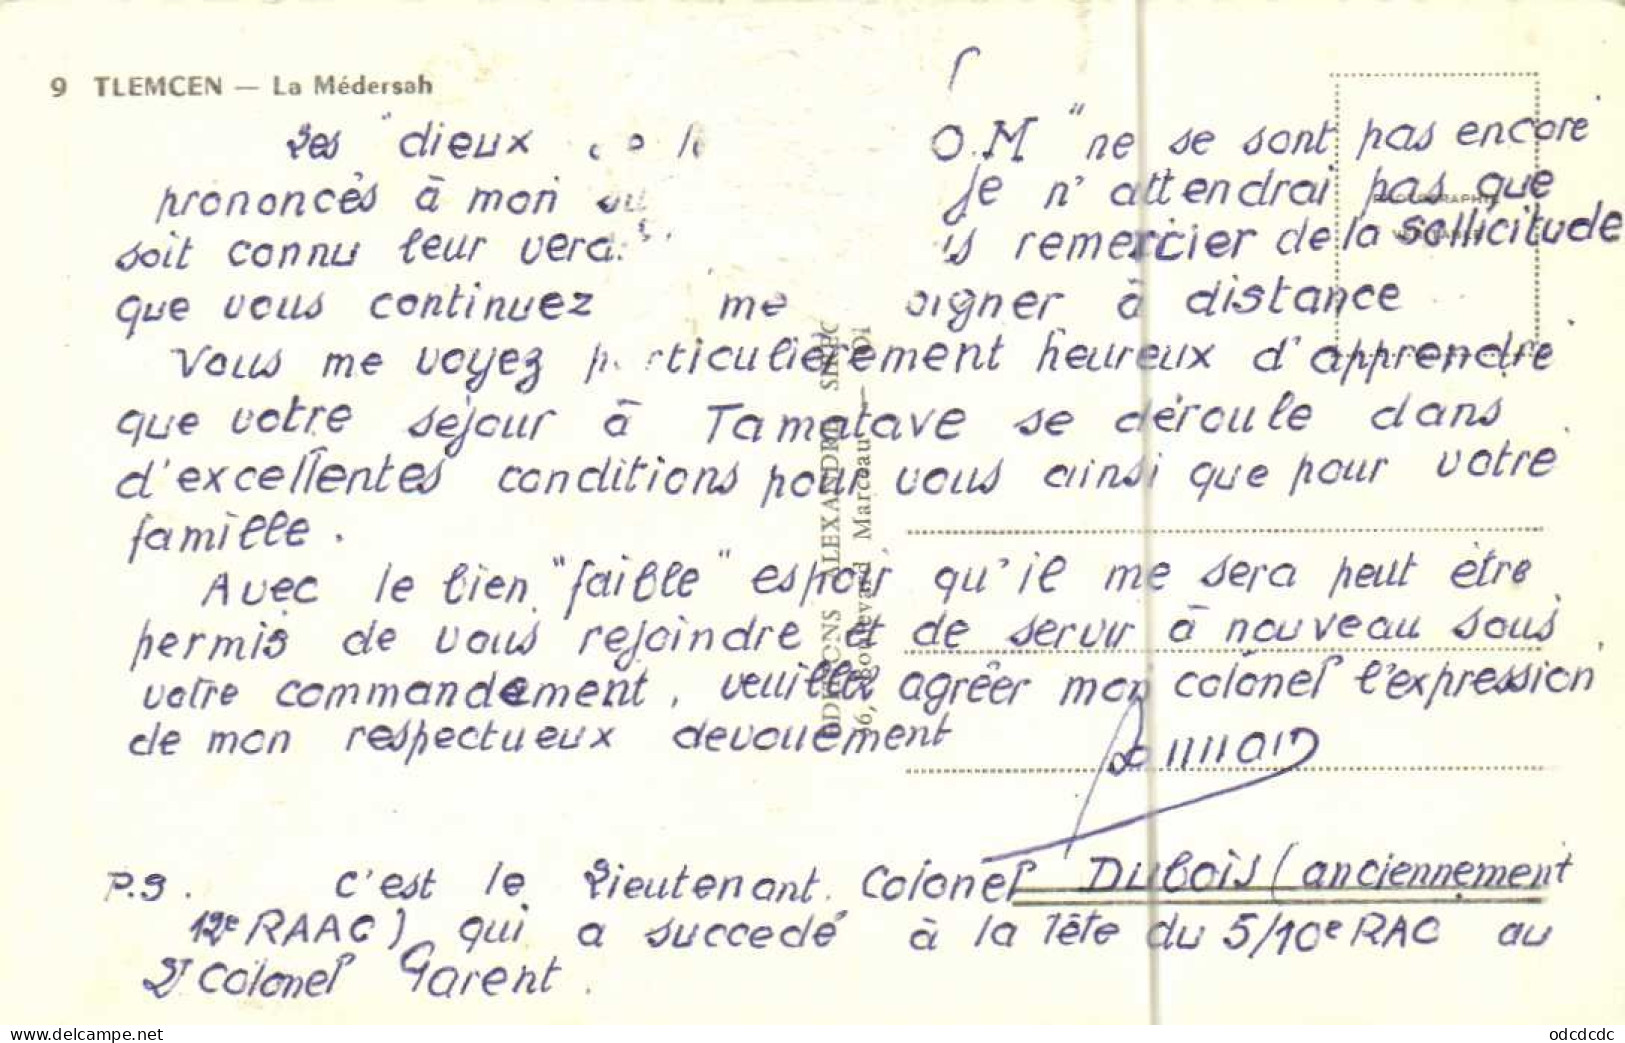 9 TLEMCEN — La Médersah
Les "dieux O.M" ne se sont pas encore
prononcés à mon je n'attendrai pas que
soit connu leur remercier de la sollicitude
que vous continuez me à distance
Vous me voyez particulièrement heureux d'apprendre
que votre séjour à Tamatave se déroule dans
d'excellentes conditions pour vous ainsi que pour votre
famille.
Avec le bien "faible" espoir qu'il me sera peut être
permis de vous rejoindre et de servir à nouveau sous
votre commandement, veuillez agréer mon colonel l'expression
de mon respectueux devouement
P.S. C'est le Lieutenant. Colonel DUBOIS (anciennement
12e RAAC) qui a succedé à la Tête du 5/10e RAC au
Lt Colonel Garent.
EDITIONS ALEXANDRE
6, Boulevard Marceau —
www.delcampe.net
odcdcdc